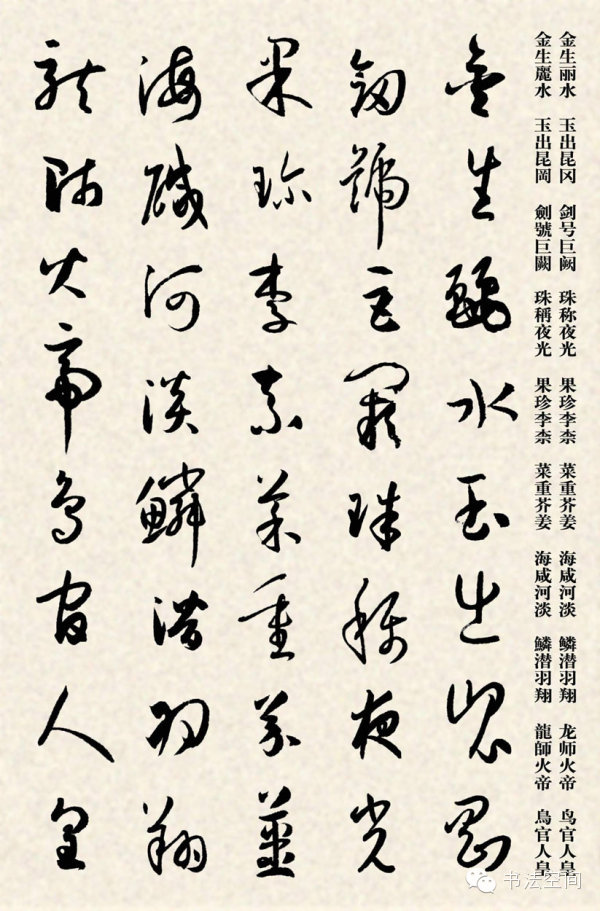 金生丽水 玉出昆冈 剑号巨阙 珠称夜光 果珍李柰 菜重芥姜 海咸河淡 鳞潜羽翔 龙师火帝 鸟官人皇
金生麗水 玉出昆岡 劍號巨闕 珠稱夜光 果珍李柰 菜重芥姜 海咸河淡 鱗潜羽翔 龍師火帝 鳥官人皇
金生麗水玉出崑岡
劍號巨闕珠稱夜光
果珍李柰菜重芥薑
海鹹河淡鱗潛羽翔
龍師火帝鳥官人皇
书法空间